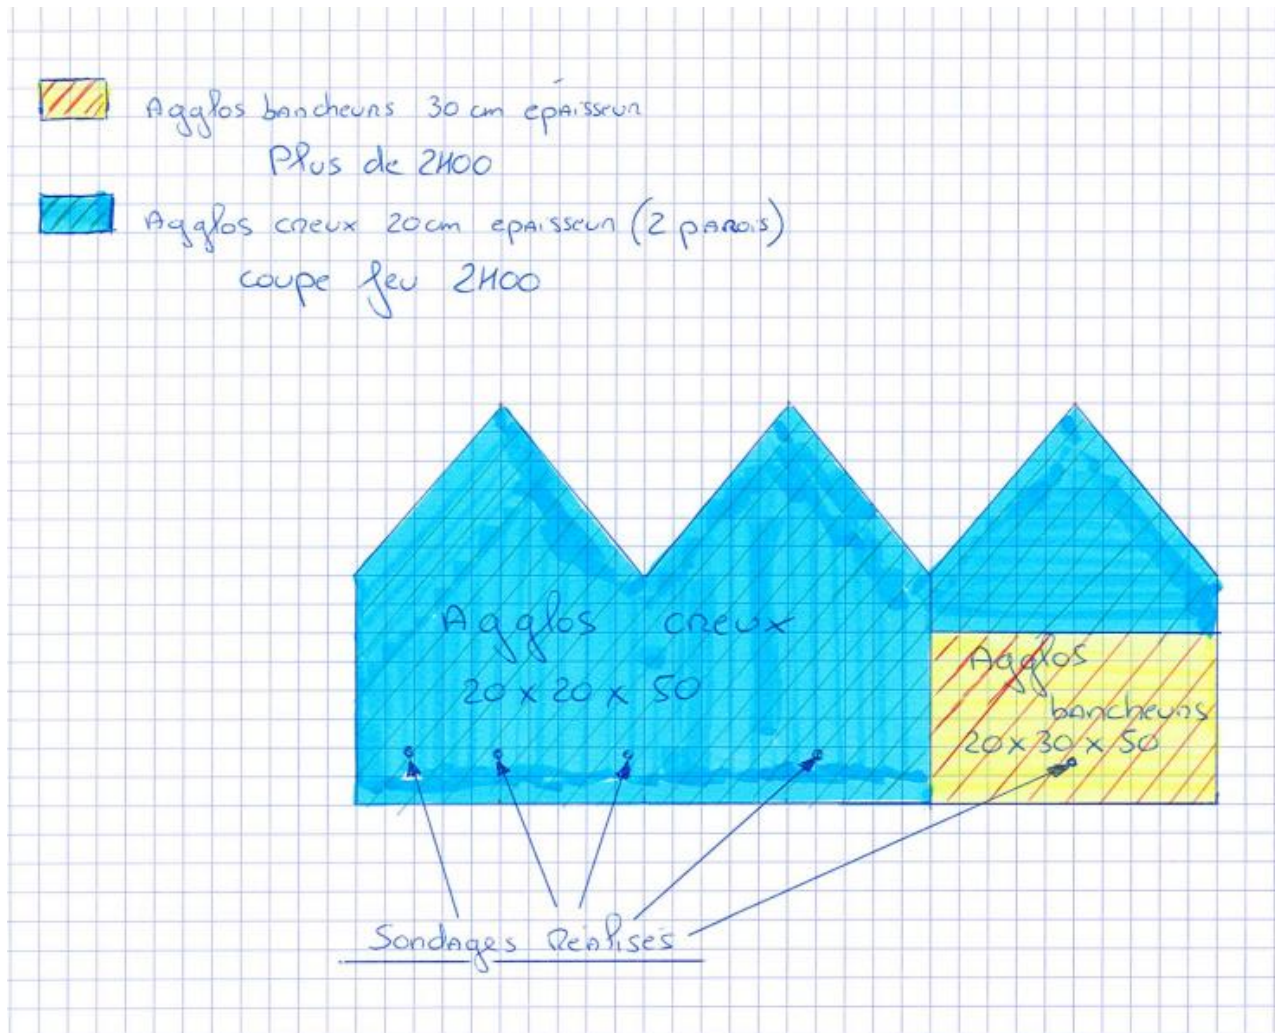 Agglos bancheurs 30 cm épaisseur
Plus de 2H00
Agglos creux 20cm epaisseur (2 parois)
coupe feu 2H00
Agglos creux
20 x 20 x 50
Agglos
bancheurs
20 x 30 x 50
Sondages Réalisés